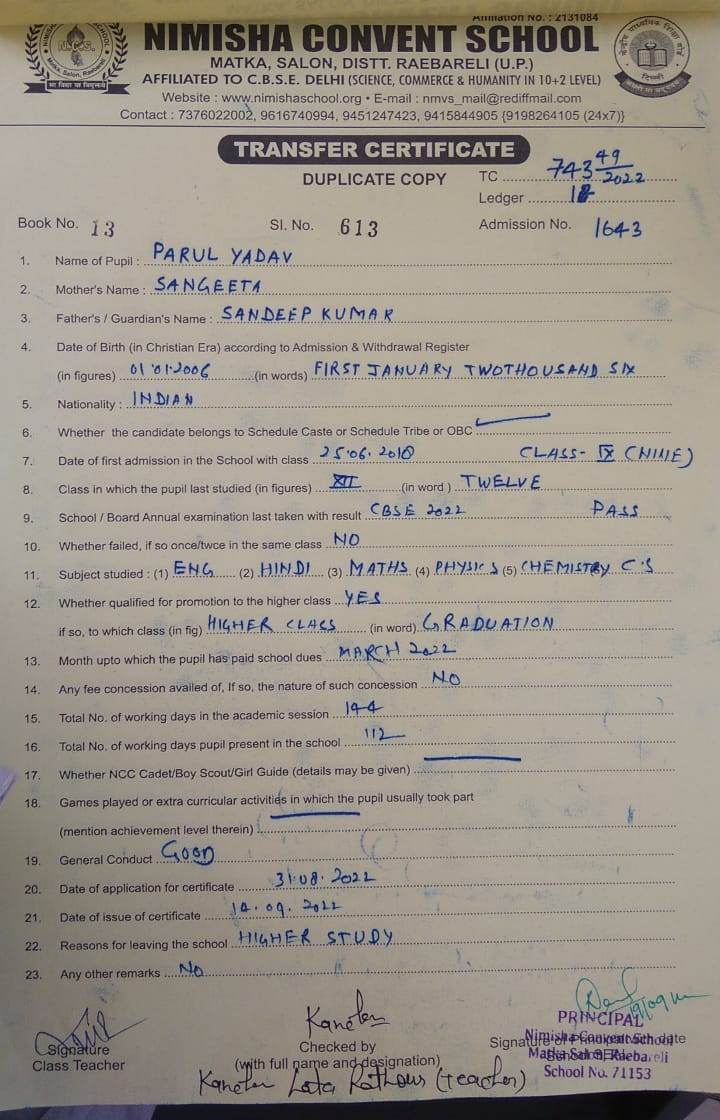 Affiliation No. : 2131084
NIMISHA CONVENT SCHOOL
MATKA, SALON, DISTT. RAEBARELI (U.P.)
AFFILIATED TO C.B.S.E. DELHI (SCIENCE, COMMERCE & HUMANITY IN 10+2 LEVEL)
Website : www.nimishaschool.org • E-mail : nmvs_mail@rediffmail.com
Contact : 7376022002, 9616740994, 9451247423, 9415844905 {9198264105 (24x7)}
TRANSFER CERTIFICATE
DUPLICATE COPY TC 743 49/2022
Ledger 18
Book No. 13 Sl. No. 613 Admission No. 1643
1. Name of Pupil : PARUL YADAV
2. Mother's Name : SANGEETA
3. Father's / Guardian's Name : SANDEEP KUMAR
4. Date of Birth (in Christian Era) according to Admission & Withdrawal Register
(in figures) 01.01.2006 (in words) FIRST JANUARY TWOTHOUSAND SIX
5. Nationality : INDIAN
6. Whether the candidate belongs to Schedule Caste or Schedule Tribe or OBC
7. Date of first admission in the School with class 25.06.2018 CLASS- IX (NINE)
8. Class in which the pupil last studied (in figures) XII (in word) TWELVE
9. School / Board Annual examination last taken with result CBSE 2022 PASS
10. Whether failed, if so once/twce in the same class NO
11. Subject studied : (1) ENG (2) HINDI (3) MATHS (4) PHYSICS (5) CHEMISTRY C.S
12. Whether qualified for promotion to the higher class YES
if so, to which class (in fig) HIGHER CLASS (in word) GRADUATION
13. Month upto which the pupil has paid school dues MARCH 2022
14. Any fee concession availed of, If so, the nature of such concession NO
15. Total No. of working days in the academic session 144
16. Total No. of working days pupil present in the school 112
17. Whether NCC Cadet/Boy Scout/Girl Guide (details may be given)
18. Games played or extra curricular activities in which the pupil usually took part
(mention achievement level therein)
19. General Conduct GOOD
20. Date of application for certificate 31.08.2022
21. Date of issue of certificate 14.09.2022
22. Reasons for leaving the school HIGHER STUDY
23. Any other remarks No
PRINCIPAL
Signature Checked by Nimisha Convent School
Class Teacher (with full name and designation) Matka Salon, Raebareli
School No. 71153
Lata (teacher)